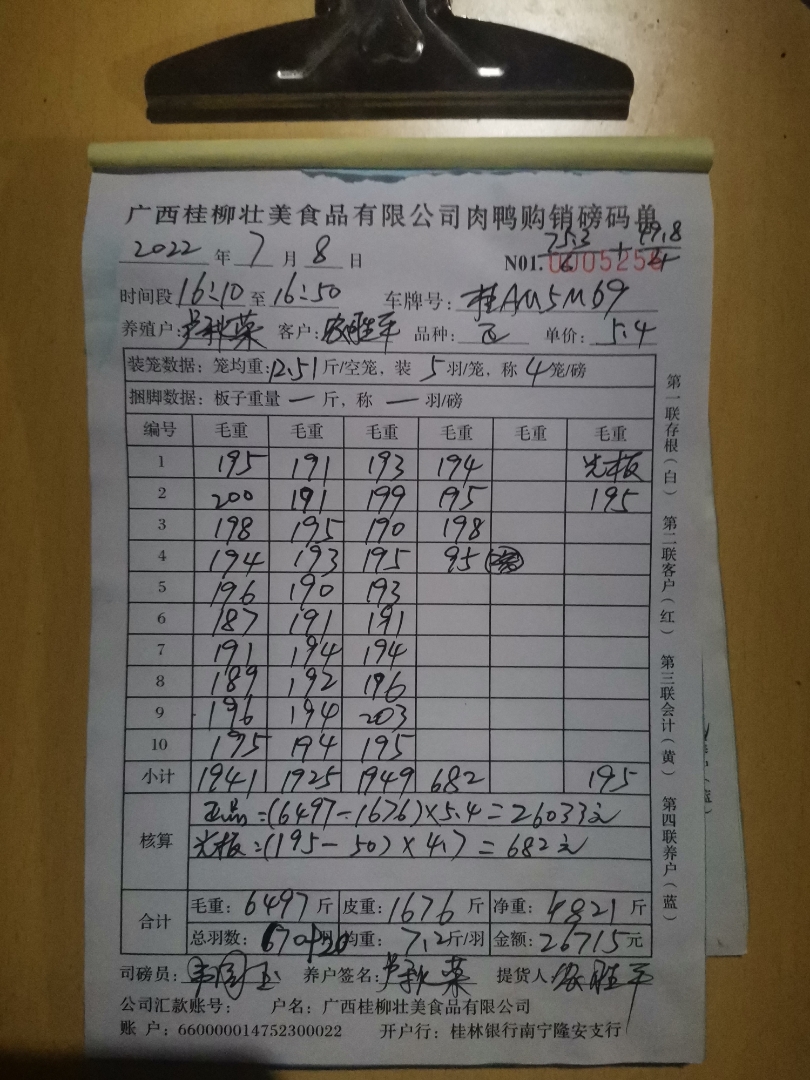 广西桂柳壮美食品有限公司肉鸭购销磅码单
2022 年 7 月 8 日 N01. 0005256 75.3/6 + 49.8/4
时间段 16:10 至 16:50 车牌号: 桂AM5M69
养殖户: 卢秋菜 客户: 农胜平 品种: 单价: 5.4
装笼数据: 笼均重: 12.51 斤/空笼, 装 5 羽/笼, 称 4 笼/磅
捆脚数据: 板子重量 一 斤, 称 一 羽/磅
编号 毛重 毛重 毛重 毛重 毛重 毛重
1 195 191 193 194 光板
2 200 191 199 195 195
3 198 195 190 198
4 194 193 195 95
5 196 190 193
6 187 191 191
7 191 194 194
8 189 192 196
9 196 194 203
10 195 194 195
小计 1941 1925 1949 682 195
核算 正品:(6497-1676)×5.4=26033元
光板:(195-50)×4.7=682元
合计 毛重: 6497 斤 皮重: 1676 斤 净重: 4821 斤
总羽数: 670+20 均重: 7.2 斤/羽 金额: 26715 元
司磅员: 韦国玉 养户签名: 卢秋菜 提货人: 农胜平
公司汇款账号: 户名: 广西桂柳壮美食品有限公司
账 户: 660000014752300022 开户行: 桂林银行南宁隆安支行
第一联存根(白) 第二联客户(红) 第三联会计(黄) 第四联养户(蓝)